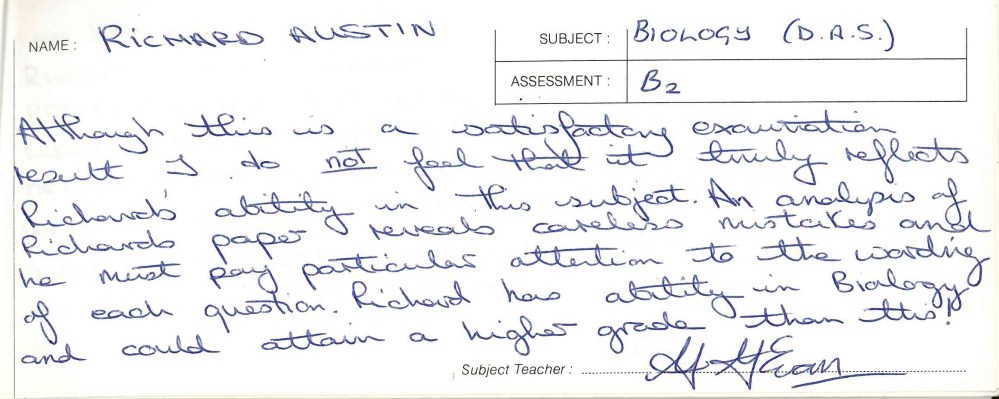 NAME: RICHARD AUSTIN
SUBJECT: BIOLOGY (D.A.S.)
ASSESSMENT: B2
Although this is a satisfactory examination
result I do not feel that it truly reflects
Richards' ability in this subject. An analysis of
Richards paper reveals careless mistakes and
he must pay particular attention to the wording
of each question. Richard has ability in Biology
and could attain a higher grade than this!
Subject Teacher: